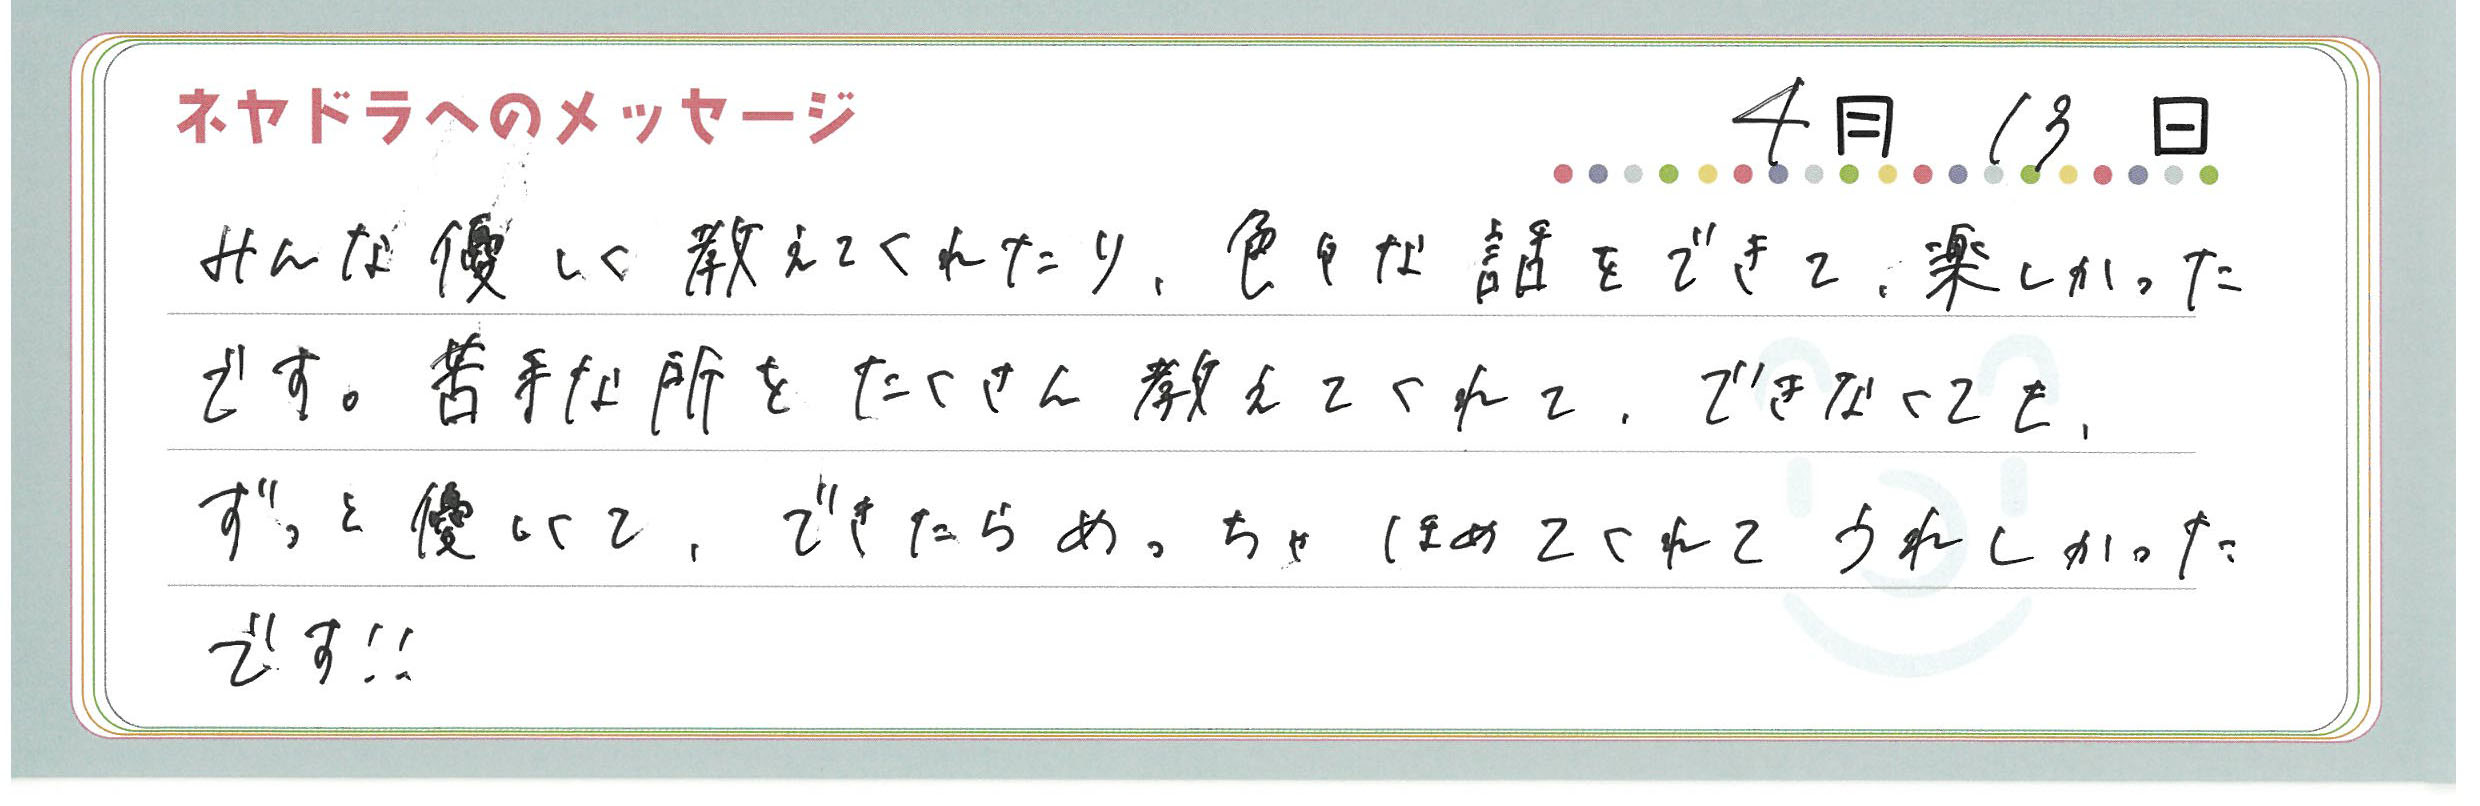 ネヤドラへのメッセージ
4月 13日
みんな優しく教えてくれたり、色々な話をできて、楽しかった
です。苦手な所をたくさん教えてくれて、できなくても、
ずっと優しくて、できたらめっちゃほめてくれてうれしかった
です!!